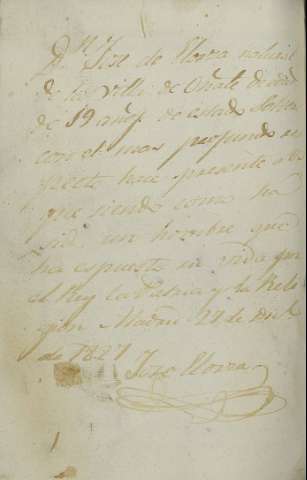 Dn José de Elorza natural
de la villa de Oñate de edad
de 59 años de estado Soltero
con el mas profundo res
peto hace presente a V.
que siendo como ha
sido un hombre que
ha espuesto su vida por
el Rey la Patria y la Reli
gion Madrid 27 de
de 1827
José Elorza